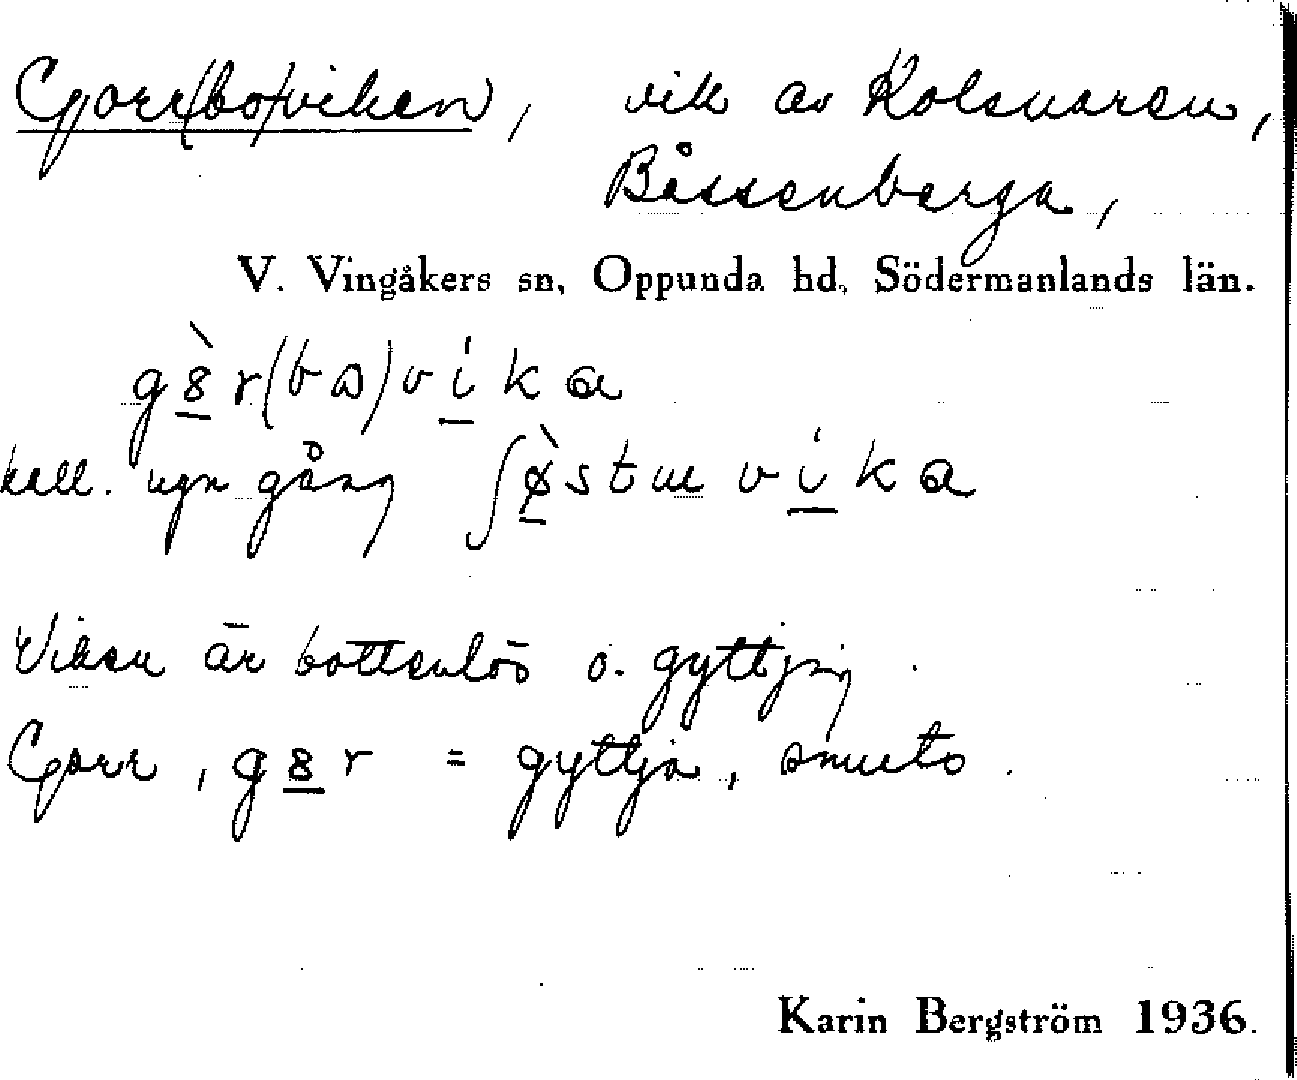 Gorr(bo)viken, vik av Kolsnaren,
Båssenberga,
V. Vingåkers sn, Oppunda hd, Södermanlands län.
g8̀r(bɷ)vika
kall. ngn gång ʃø̀stɯvika
Viken är bottenlös o. gyttjig.
Gorr, g8r = gyttja, smuts.
Karin Bergström 1936.